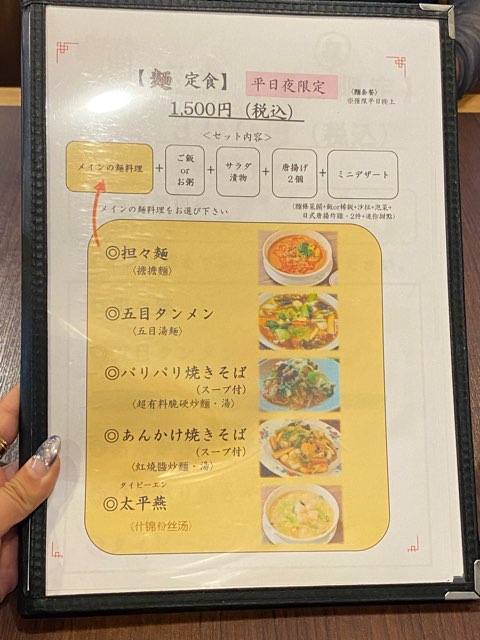 【麺 定食】 平日夜限定 (麵套餐)
※僅限平日晚上
1,500円（税込）
＜セット内容＞
メインの麺料理 + ご飯 or お粥 + サラダ 漬物 + 唐揚げ 2個 + ミニデザート
メインの麺料理をお選び下さい
(麵條菜餚+飯or稀飯+沙拉+泡菜+
日式唐揚炸雞・2件+迷你甜點)
◎担々麺
(擔擔麵)
◎五目タンメン
(五目湯麵)
◎パリパリ焼きそば
(スープ付)
(超有料脆硬炒麵・湯)
◎あんかけ焼きそば
(スープ付)
(紅燒醬炒麵・湯)
タイピーエン
◎太平燕
(什锦粉丝汤)